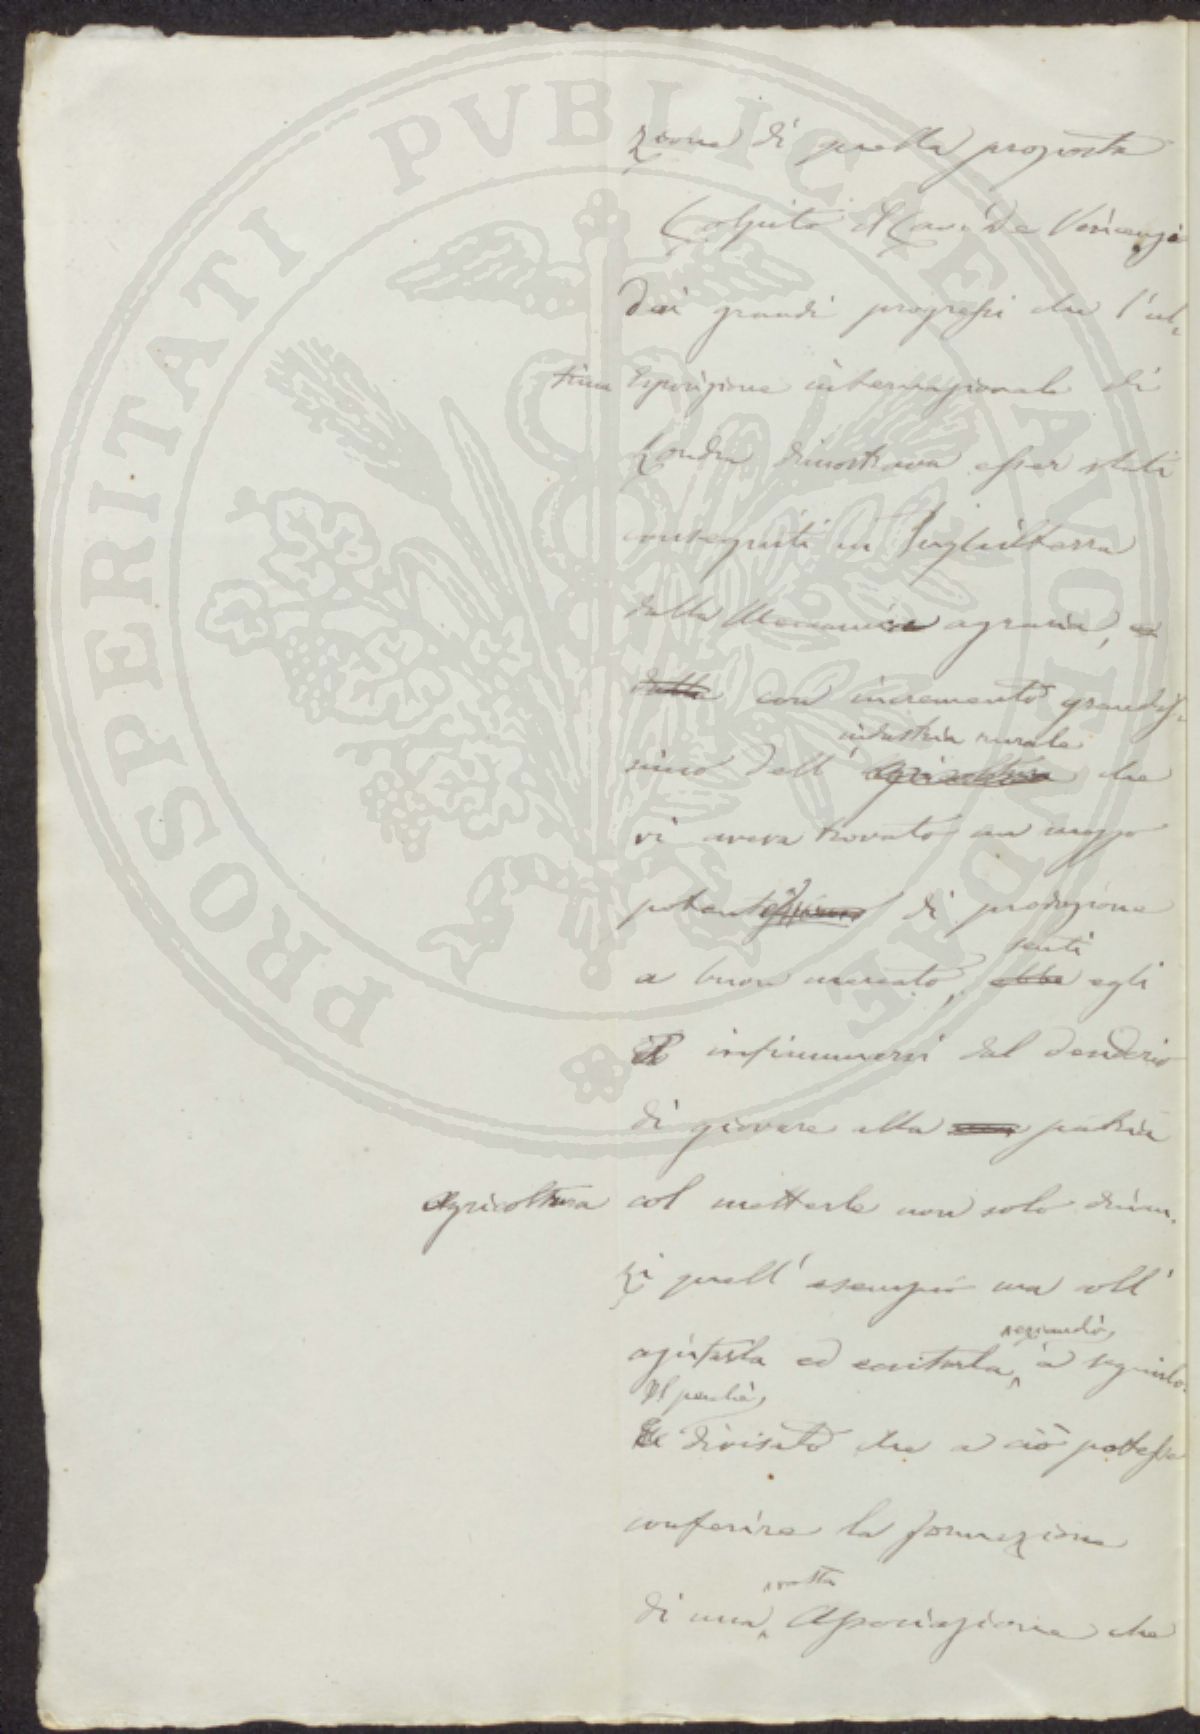 PROSPERITATI PVBLICAE AVGENDAE
zione di quella proposta
Colpito il Cav. De Vincenzi
dei grandi progressi che l'ul-
tima Esposizione internazionale di
Londra dimostrava esser stati
conseguiti in Inghilterra
dalla Meccanica agraria, e
dalla con incremento grandis-
industria rurale
simo dell' agricoltura che
vi aveva trovato un mezzo
potentissimo di produzione
sentì
a buon mercato, ebbe egli
infiammarsi dal desiderio
di giovare alla patria
agricoltura col metterle non solo dinan-
zi quell' esempio ma coll'
ajutarla ed eccitarla, a seguirlo.
Il perchè,
divisato che a ciò potesse
conferire la formazione
di una Associazione che